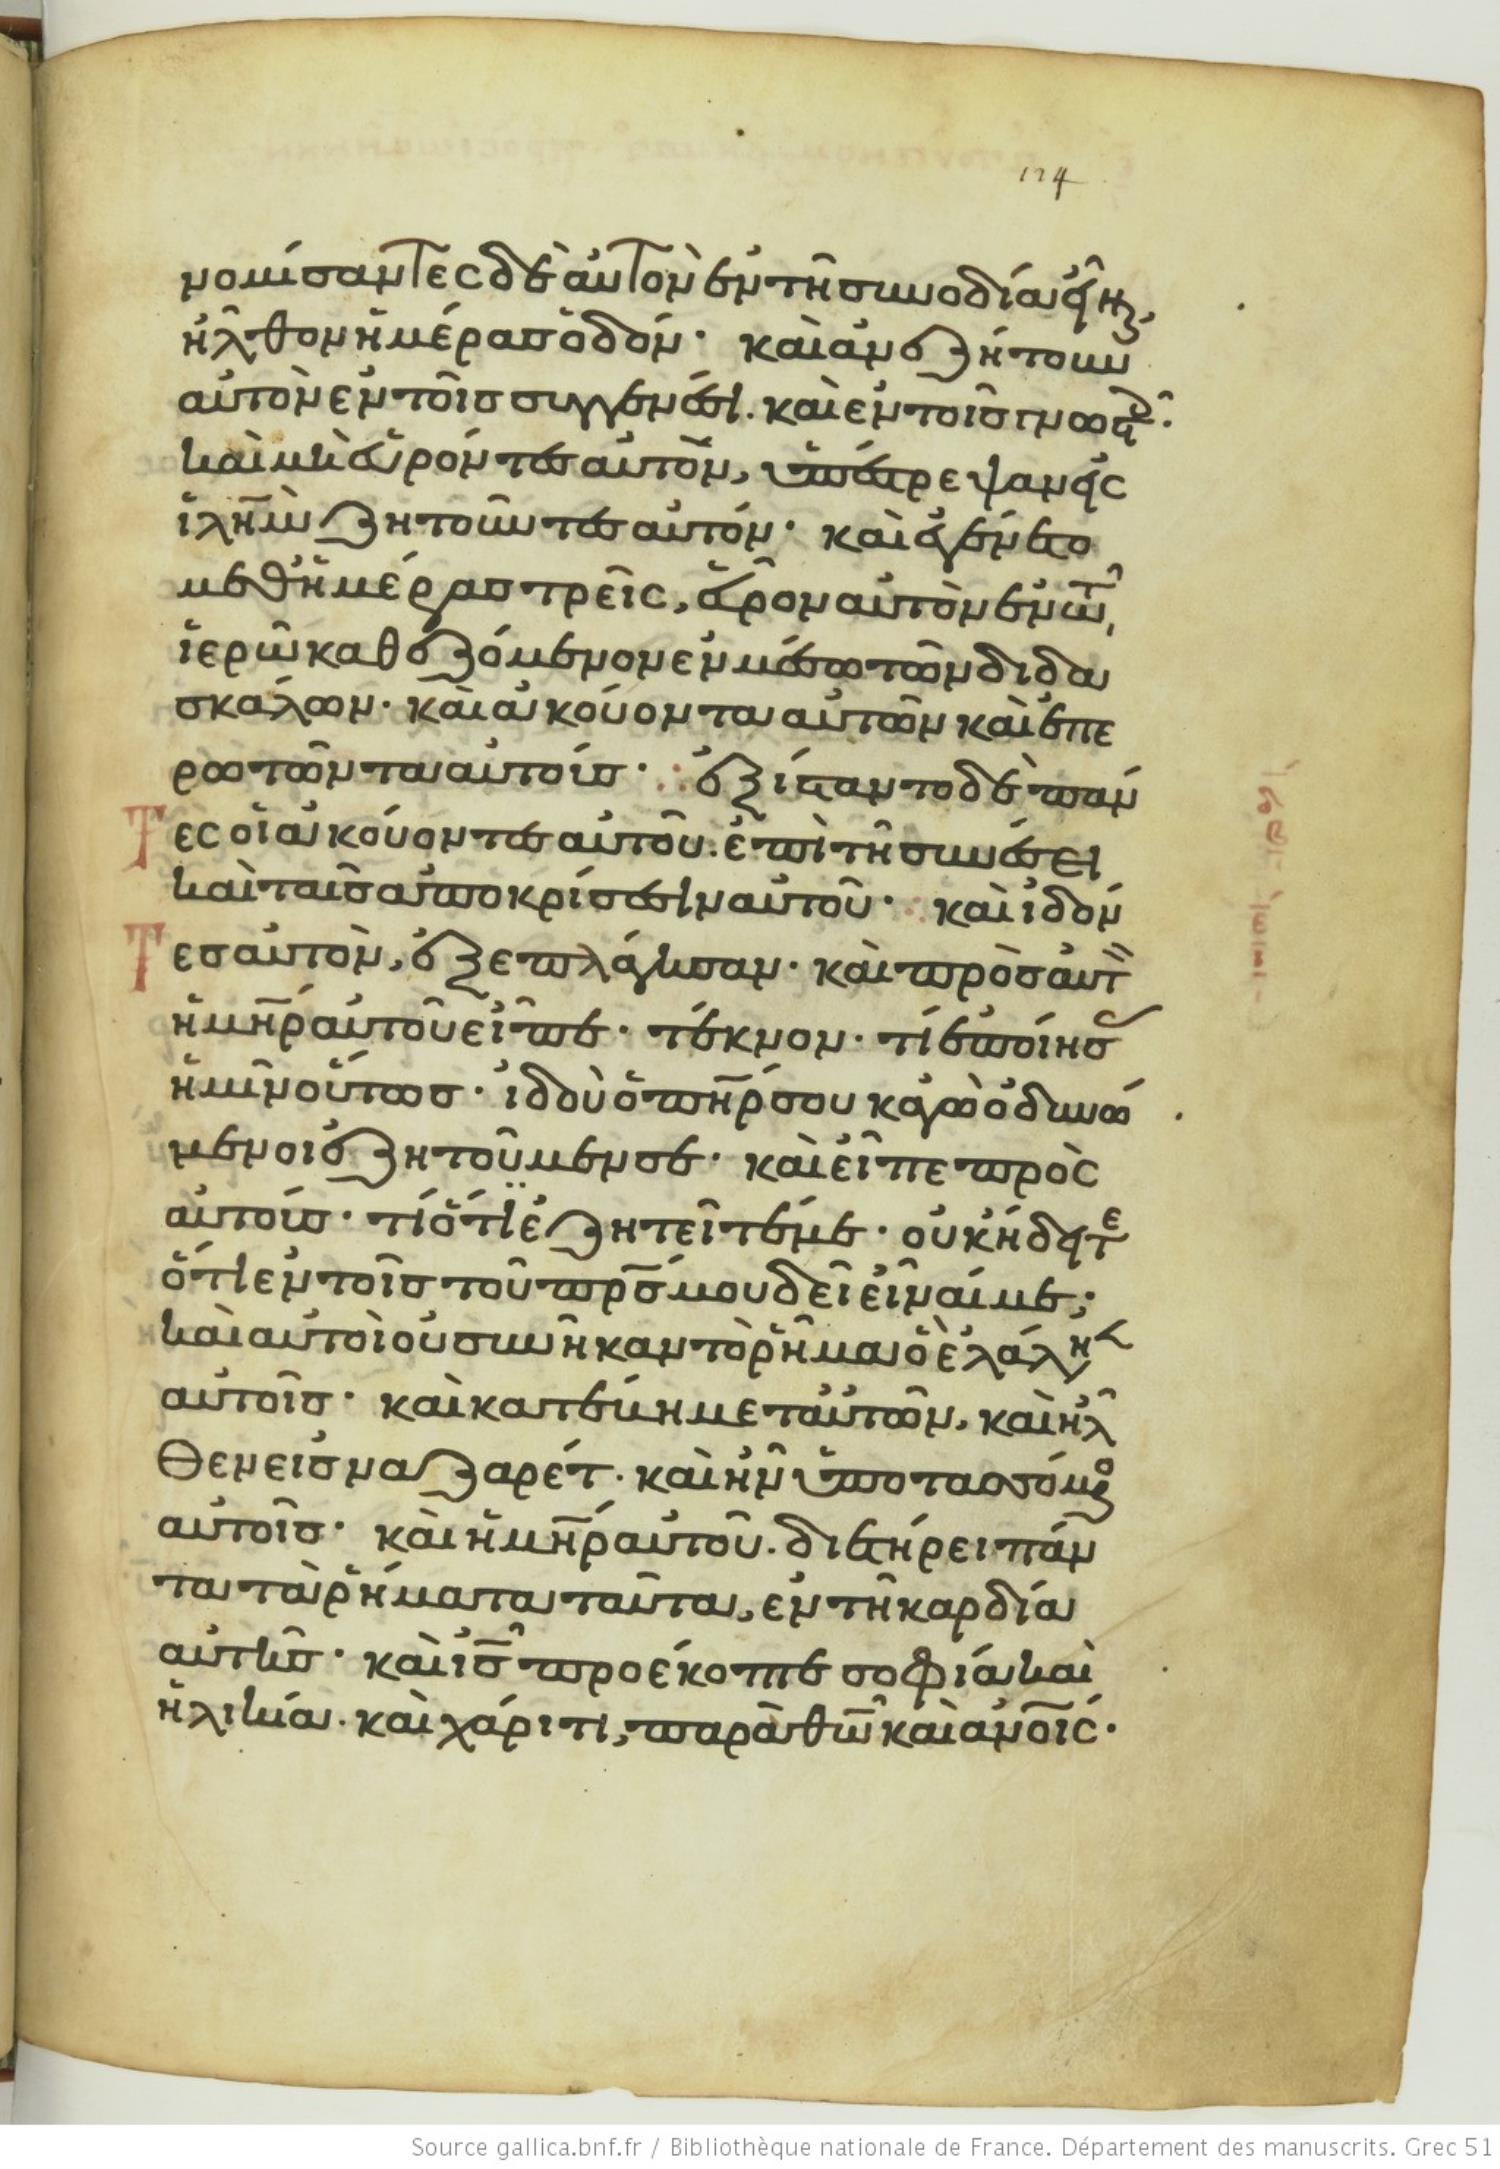 124
νομίσαντες δὲ αὐτὸν ἐν τῆ συνοδία εἶν,
ἦλθον ἡμέρας ὁδόν· καὶ ἀνεζήτουν
αὐτὸν ἐν τοῖς συγγενέσι. καὶ ἐν τοῖς γνωστ·
καὶ μὴ εὑρόντες αὐτὸν, ὑπέστρεψαν εἰς
ἱλῆμ ζητοῦντες αὐτόν· καὶ ἐγένετο
μεθ ἡμέρας τρεῖς, εὗρον αὐτὸν ἐν τῶ
ἱερῶ καθεζόμενον ἐν μέσω τῶν διδα
σκάλων· καὶ ἀκούοντα αὐτῶν καὶ ἐπε
ρωτῶντα αὐτούς· ἐξίσταντο δὲ πάν
τες οἱ ἀκούοντες αὐτοῦ. ἐπὶ τῆ συνέσει
καὶ ταῖς ἀποκρίσεσιν αὐτοῦ· καὶ ἰδόν
τες αὐτὸν, ἐξεπλάγησαν· καὶ πρὸς αὐτ
ἡ μηρ αὐτοῦ εἶπε· τέκνον· τί ἐποίησ
ἡμῖν οὕτως· ἰδοὺ ὁ πηρ σου κἀγὼ ὀδυνώ
μενοι ἐζητοῦμέν σε· καὶ εἶπε πρὸς
αὐτούς· τί ὅτι ἐζητεῖτέ με· οὐκ ἤδειτε
ὅτι ἐν τοῖς τοῦ πρς μου δεῖ εἶναί με;
καὶ αὐτοὶ οὐ συνῆκαν τὸ ῥῆμα ὃ ἐλάλησ
αὐτοῖς· καὶ κατέβη μετ αὐτῶν, καὶ ἦλ
θεν εἰς ναζαρέτ· καὶ ἦν ὑποτασσόμενος
αὐτοῖς· καὶ ἡ μηρ αὐτοῦ. διετήρει πάν
τα τὰ ῥήματα ταῦτα, ἐν τῆ καρδία
αὐτῆς· καὶ ις προέκοπτε σοφία καὶ
ἡλικία. καὶ χάριτι, παρὰ θω καὶ ανοις·
Source gallica.bnf.fr / Bibliothèque nationale de France. Département des manuscrits. Grec 51